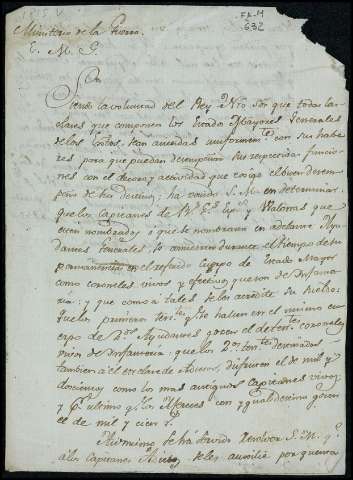 FA-M
632
Ministerio de la Guerra.
E. M. G.
Siendo la voluntad del Rey Nro. Sor. que todas las
clases que componen los Estados Mayores Generales
de los sean atendidas uniformemte. con sus habe
res para que puedan desempeñar sus respectivas funcio
nes con el decoro y actividad que exige el buen desem
peño de sus destinos; ha venido S. M. en determinar
que los Capitanes de Rs. Gs. Esps. y Walonas que
estén nombrados, ó que se nombraren en adelante Ayu
dantes Generales, lo durante el tiempo de su
permanencia en el referido Cuerpo de Estado Mayor
como coroneles vivos y efectivos que son de Infante
ria; y que como a tales se les acredite su sueldo:
que los primeros tentes. qe. se hallen en el mismo cu
erpo de 1os. Ayudantes gocen el de tentes. coroneles
vivos de Infanteria: que los 2os. tentes. destinados
tambien á él en clase de disfruten el de mil y
docientos como los mas antiguos capitanes vivos
y pr. ultimo qe. los Alfereces con ygual destino gocen
el de mil y cien rs.
Asimismo se ha servido resolver S. M. qe.
a los Capitanes se les auxilie por quenta